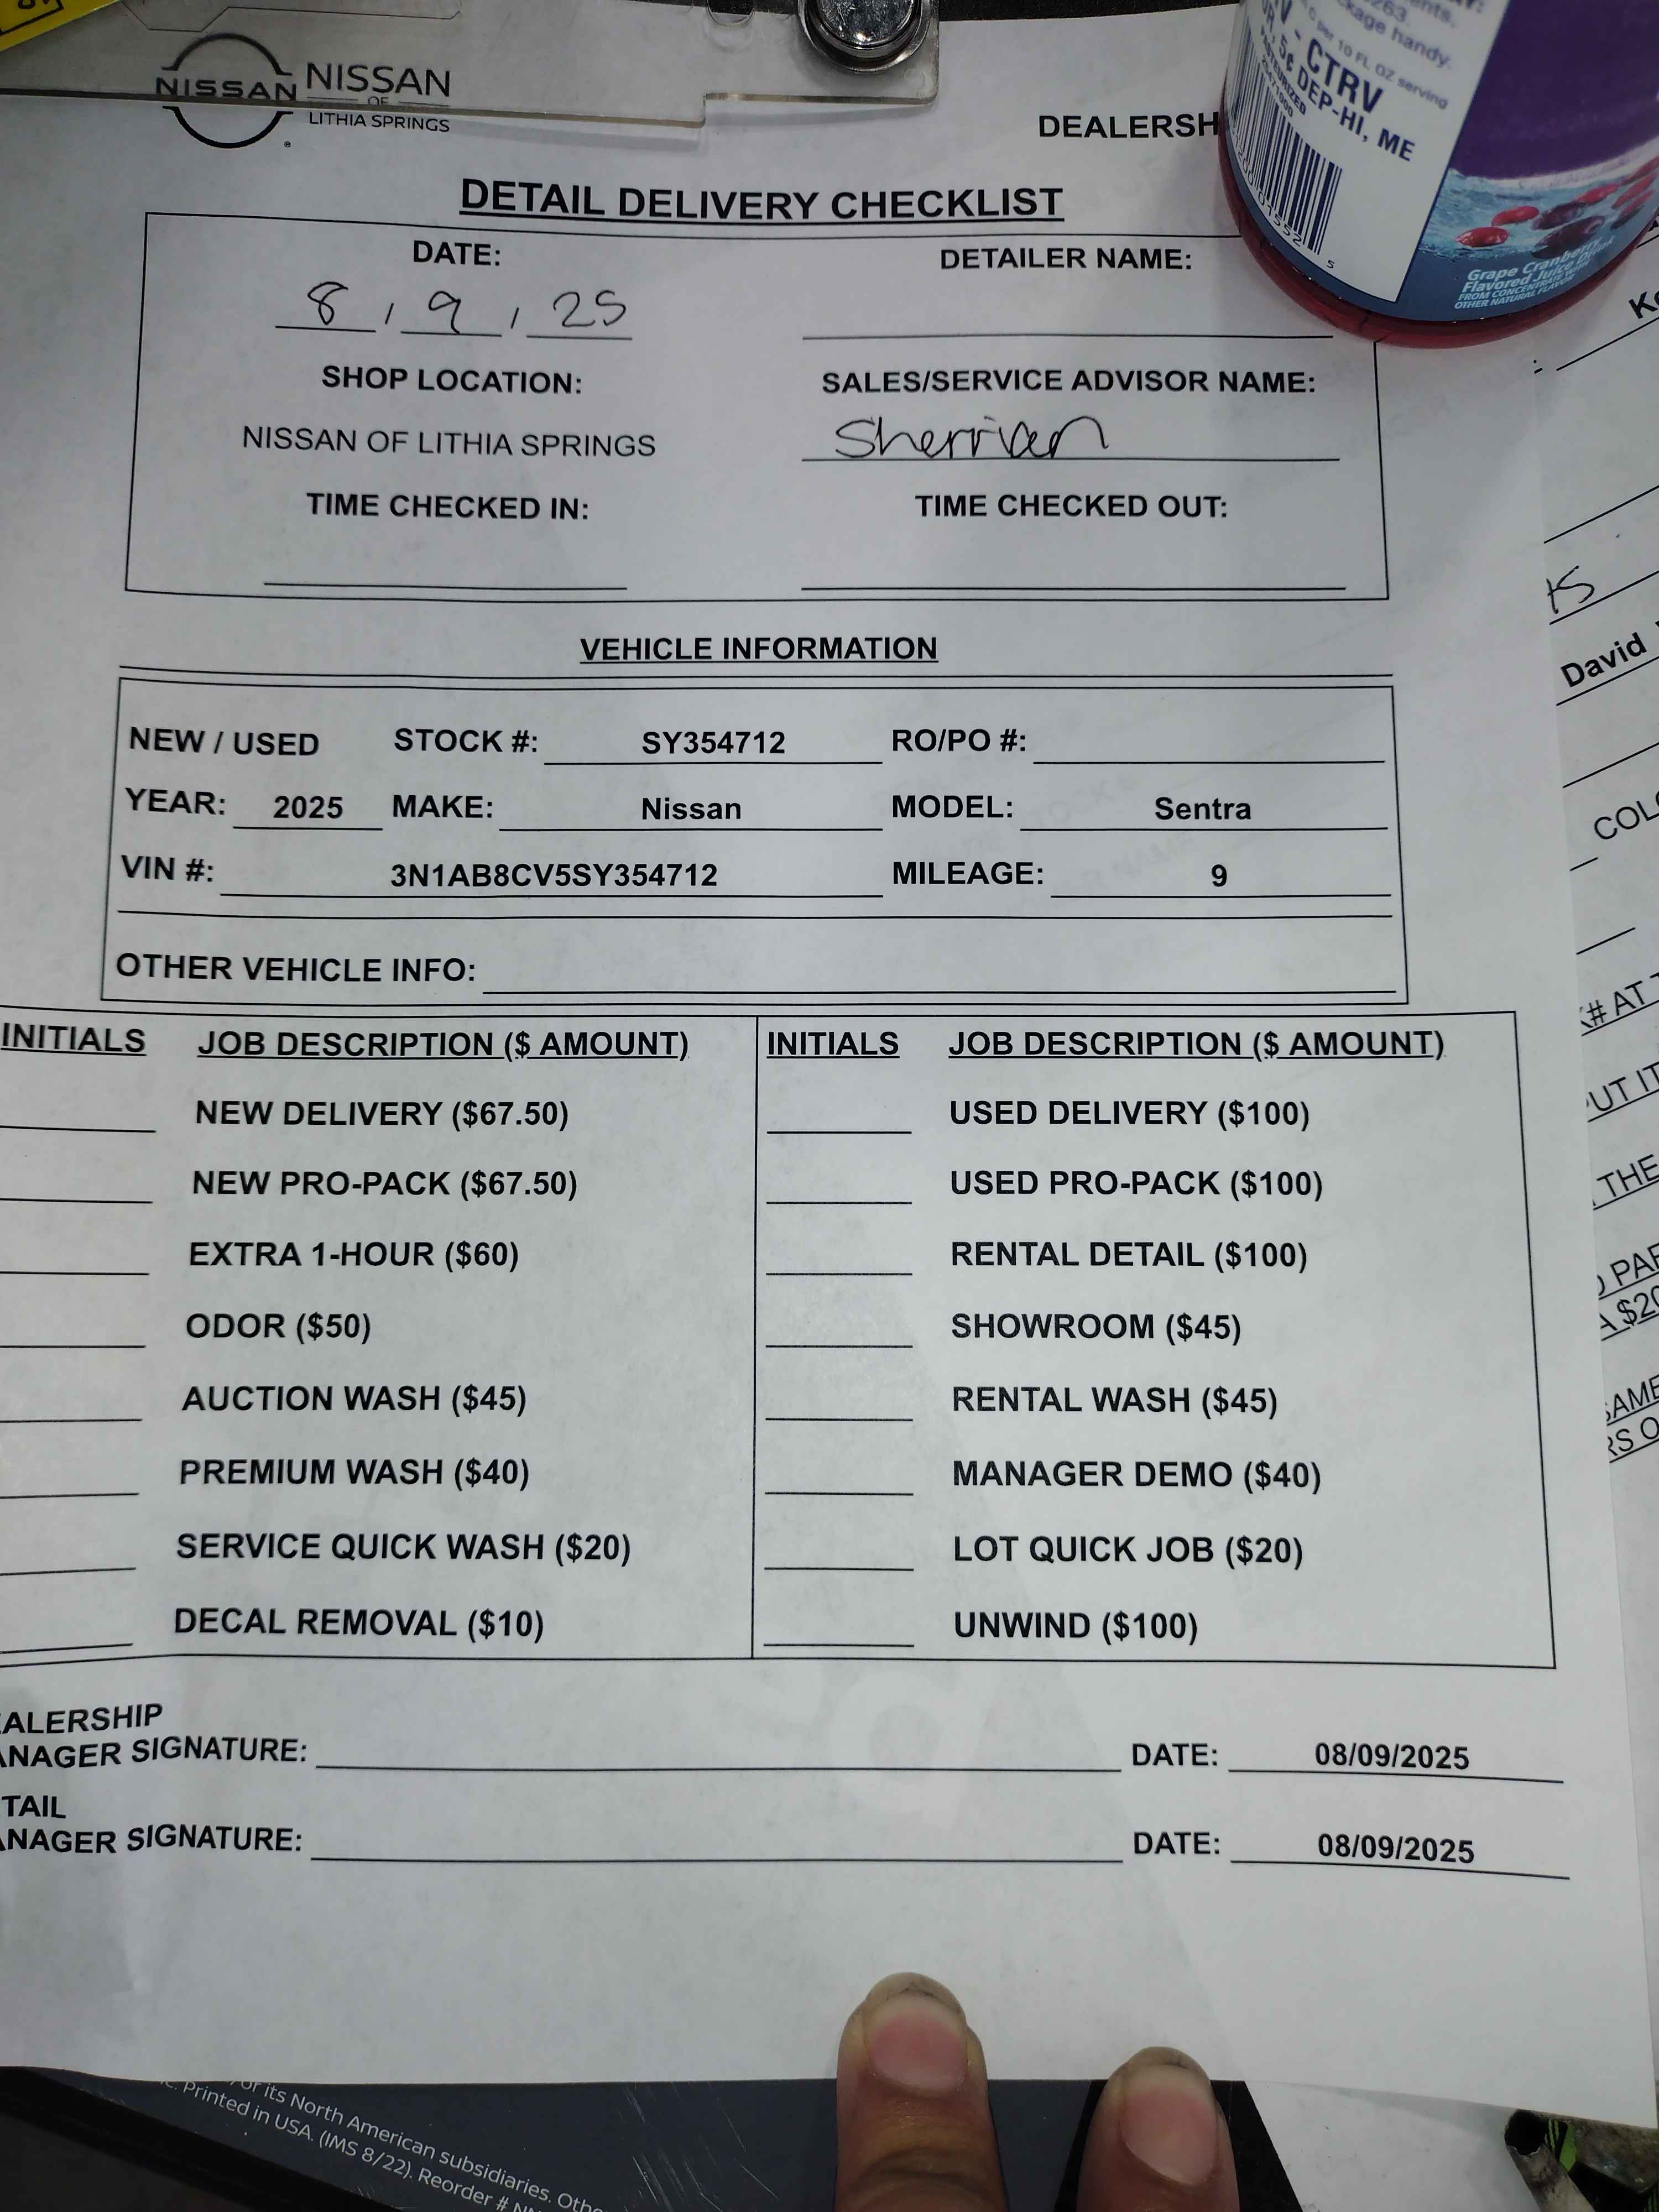 NISSAN NISSAN
OF
LITHIA SPRINGS
DEALERSH
CTRV
5¢ DEP-HI, ME
per 10 FL OZ serving
Grape Cranberry
Flavored Juice Drink
FROM CONCENTRATE WITH
OTHER NATURAL FLAVORS
DETAIL DELIVERY CHECKLIST
DATE: DETAILER NAME:
8 / 9 / 25
SHOP LOCATION: SALES/SERVICE ADVISOR NAME:
NISSAN OF LITHIA SPRINGS Sherrian
TIME CHECKED IN: TIME CHECKED OUT:
VEHICLE INFORMATION
NEW / USED STOCK #: SY354712 RO/PO #:
YEAR: 2025 MAKE: Nissan MODEL: Sentra
VIN #: 3N1AB8CV5SY354712 MILEAGE: 9
OTHER VEHICLE INFO:
INITIALS JOB DESCRIPTION ($ AMOUNT) INITIALS JOB DESCRIPTION ($ AMOUNT)
NEW DELIVERY ($67.50) USED DELIVERY ($100)
NEW PRO-PACK ($67.50) USED PRO-PACK ($100)
EXTRA 1-HOUR ($60) RENTAL DETAIL ($100)
ODOR ($50) SHOWROOM ($45)
AUCTION WASH ($45) RENTAL WASH ($45)
PREMIUM WASH ($40) MANAGER DEMO ($40)
SERVICE QUICK WASH ($20) LOT QUICK JOB ($20)
DECAL REMOVAL ($10) UNWIND ($100)
ALERSHIP
ANAGER SIGNATURE: DATE: 08/09/2025
TAIL
ANAGER SIGNATURE: DATE: 08/09/2025
David
COLO
# AT
UT IT
THE
PAR
A $20
SAME
RS O
or its North American subsidiaries. Othe
Printed in USA. (IMS 8/22). Reorder #